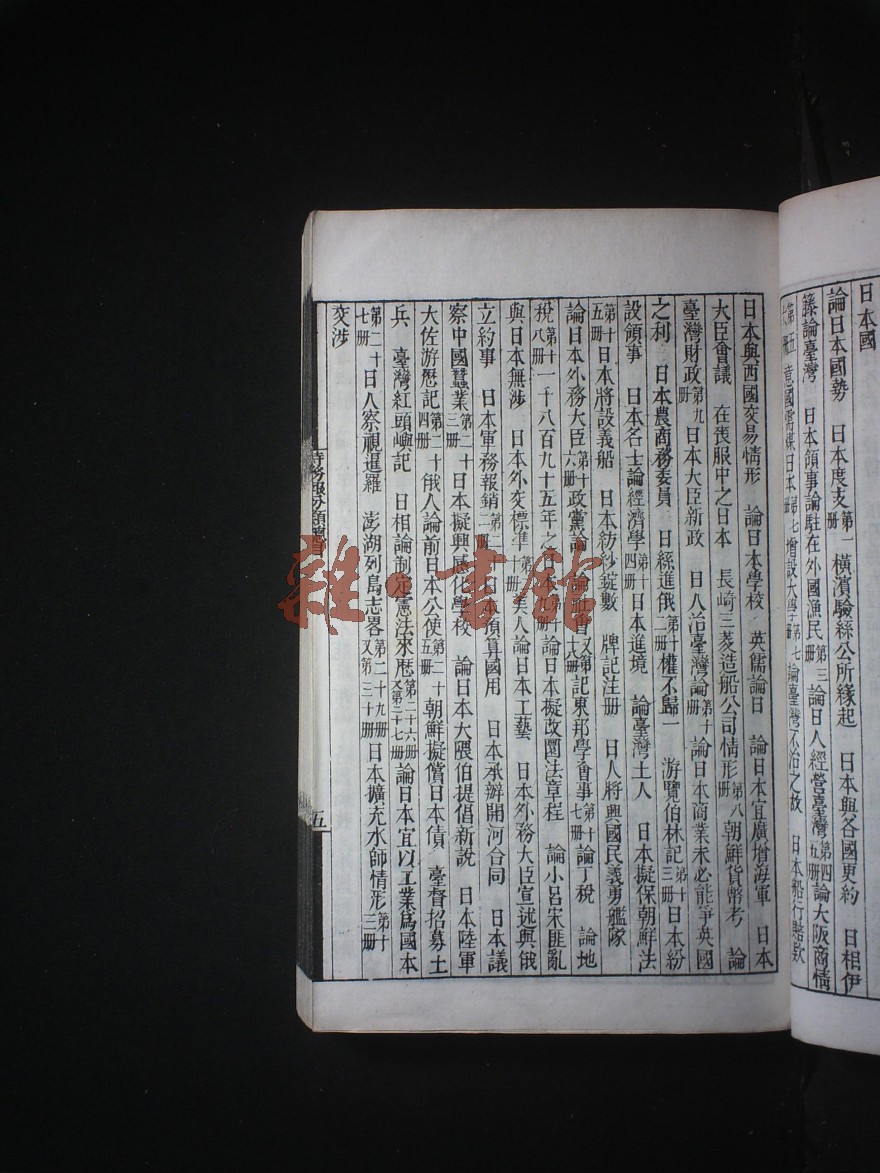 日本國
論日本國勢　日本度支第一册橫濱驗絲公所緣起　日本與各國更約　日相伊
籐論臺灣　日本領事論駐在外國漁民第三册論日人經營臺灣第四五册論大阪商情
第五六册意國需煤日本第七册增設大學第七論臺灣不治之故　日本船行賠款
日本與西國交易情形　論日本學校　英儒論日　論日本宜廣增海軍　日本
大臣會議　在喪服中之日本　長崎三菱造船公司情形第八册朝鮮貨幣考　論
臺灣財政第九册日本大臣新政　日人治臺灣論第十册論日本商業未必能爭英國
之利　日本農商務委員　日絲進俄第十二册權不歸一　游覽伯林記第十三册日本紛
設領事　日本名士論經濟學第十四册日本進境　論臺灣土人　日本擬保朝鮮法
第十五册日本將設義船　日本紡紗錠數　牌記注册　日人將興國民義勇艦隊
論日本外務大臣第十六册政黨論　論社會記東邦學會事第十七册論丁稅　論地
稅第十八册一千八百九十五年之日本論日本擬改圜法章程　論小呂宋匪亂
與日本無涉　日本外交標準美人論日本工藝　日本外務大臣宣述與俄
立約事　日本軍務報銷第二十二册日本預算國用　日本承辦開河合同　日本議
察中國蠶業第二十三册日本擬興感化學校　論日本大隈伯提倡新說　日本陸軍
大佐游歷記第二十四册俄人論前日本公使第二十五册朝鮮擬償日本債　臺督招募土
兵　臺灣紅頭嶼記　日相論制定憲法來歷第二十六册又第二十七册論日本宜以工業爲國本
第二十七册日人察視暹羅　澎湖列島志畧第二十九册又第三十册日本擴充水師情形第十三册
交涉
時務報分類總目
五
雜·書館